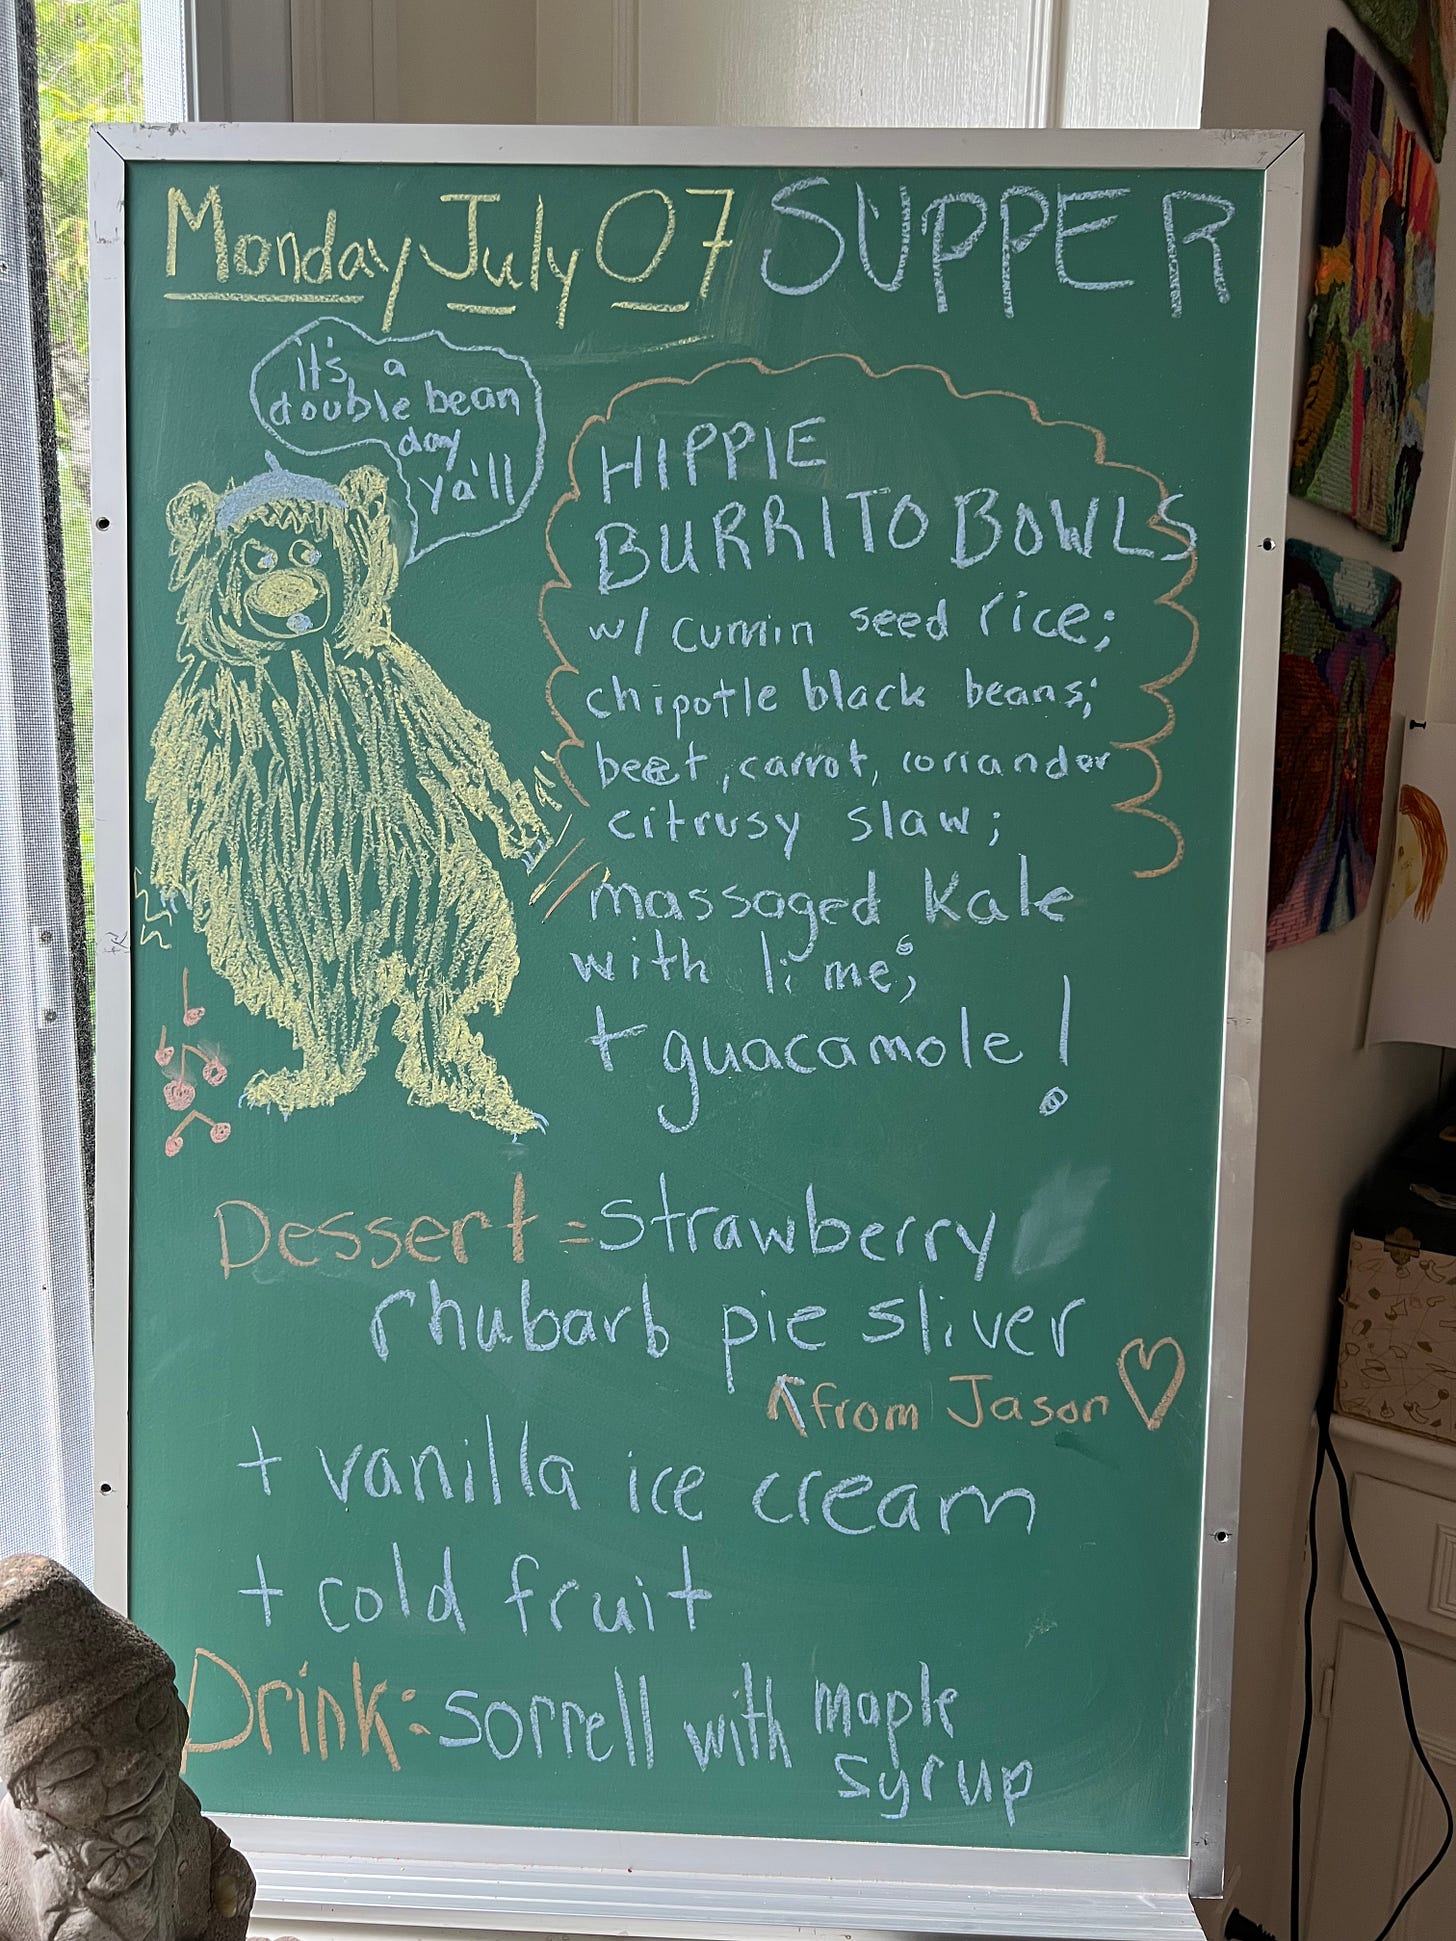 Monday July 07 SUPPER
it's a
double bean
day
ya'll
HIPPIE
BURRITO BOWLS
w/ cumin seed rice;
chipotle black beans;
beet, carrot, coriander
citrusy slaw;
massaged kale
with lime;
+ guacamole!
Dessert = strawberry
rhubarb pie sliver
from Jason
+ vanilla ice cream
+ cold fruit
Drink: sorrell with maple
syrup